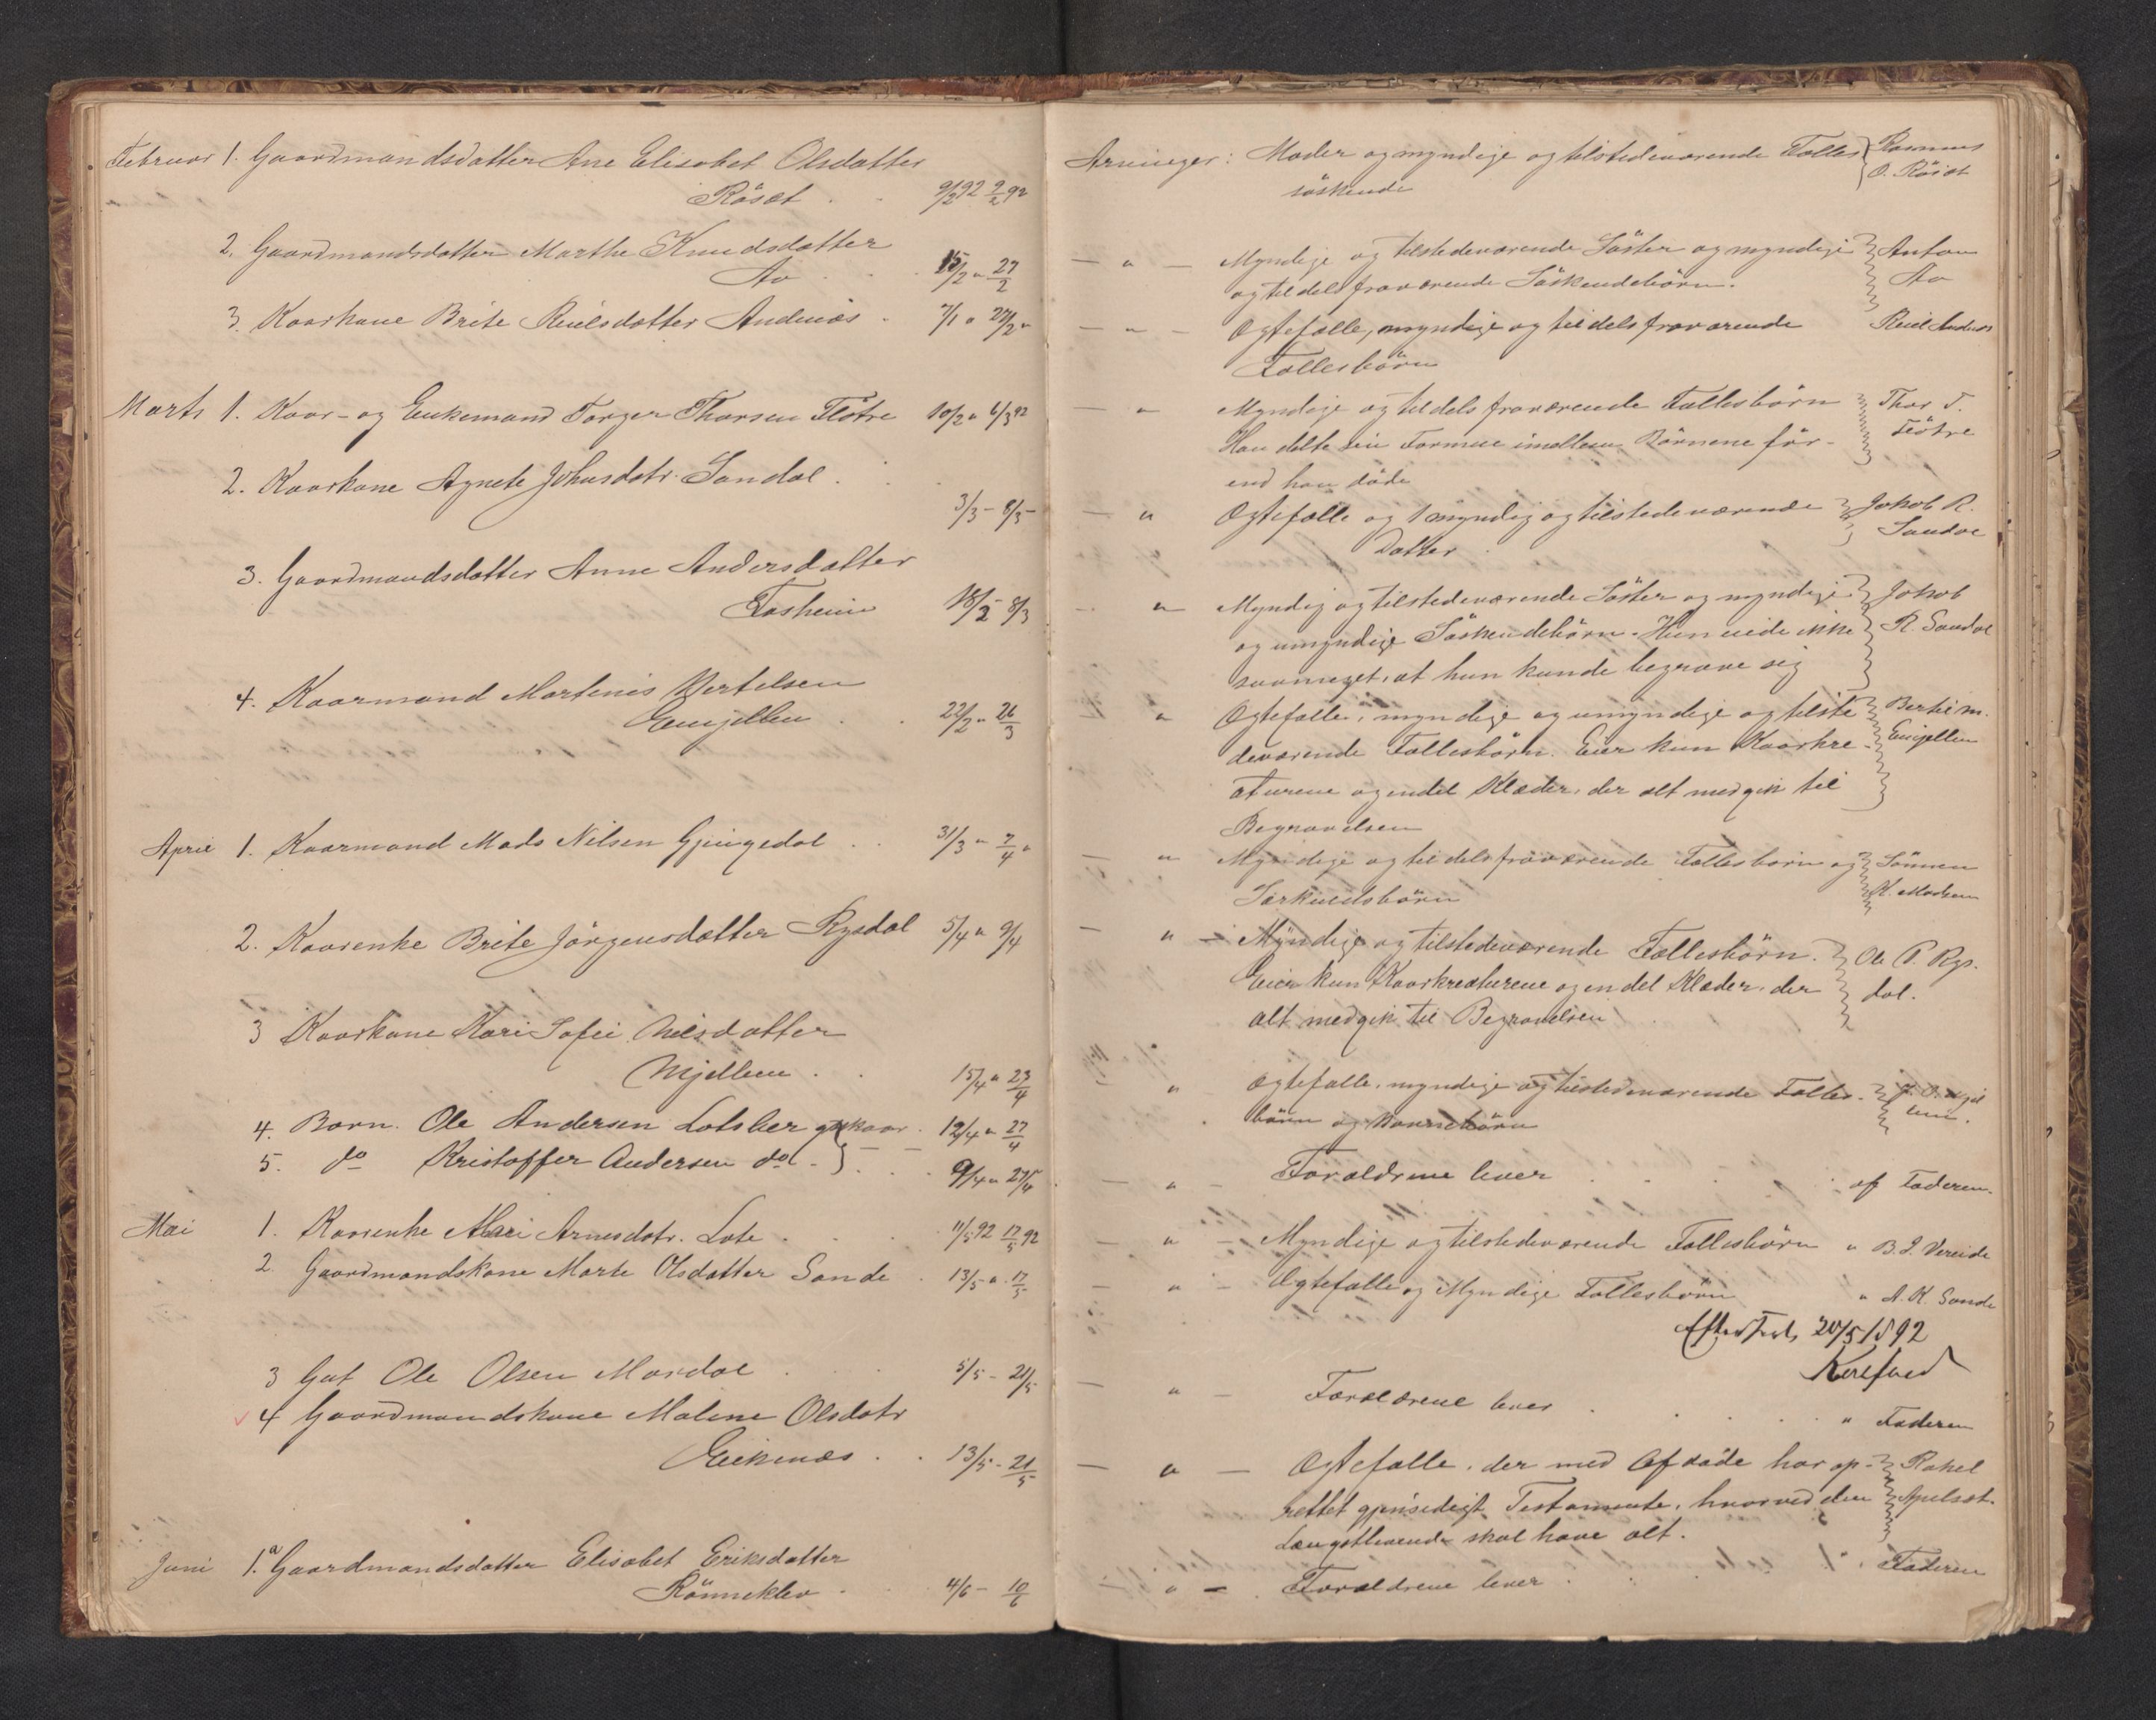 Februar 1. Gaardmandsdatter Ane Elisabet Olsdatter
Röset . . 9/2 92 9/2 92
2. Gaardmandsdatter Marthe Knudsdatter
Aa . . . 15/2 " 27/2
3. Kaarkone Brite Reielsdatter Andenæs . 7/1 " 27/2 "
Marts 1. Kaar- og Enkemand Torger Thorsen Flötre 10/2 " 6/3 92
2. Kaarkone Agnete Johnsdatr. Sandal . .
3/3 - 8/3 -
3. Gaardmandsdatter Anne Andersdatter
Fosheim 18/2 8/3
4. Kaarmand Martinus Bertelsen
Engjellen . . 22/2 " 26/3
April 1. Kaarmand Mads Nilsen Gjengedal . . 31/3 " 7/4 "
2. Kaarenke Brite Jörgensdatter Rygdal 5/4 " 9/4
3 Kaarkone Kari Sofie Nilsdatter
Mjellem . . 15/4 " 23/4
4. Barn. Ole Andersen Lotsberg 12/4 " 27/4
5. do Kristoffer Andersen do . . . 9/4 " 27/4
Mai 1. Kaarenke Mari Arnesdatr. Lote . . . 11/5 92 17/5 92
2. Gaardmandskone Marte Olsdatter Sande . 13/5 " 17/5
3 Gut Ole Olsen Mardal . . 5/5 - 21/5
4 Gaardmandskone Malene Olsdatr
Eikenæs . . 13/5 - 21/5
Juni 1.a Gaardmandsdatter Elisabet Eriksdatter
Rönneklev . 4/6 - 10/6
Arvinger: Moder og myndige og tilstedeværende Fælles Rasmus
söskende O. Röset
— " — Myndige og tilstedeværende Söster og myndige Anton
og tildels fraværende Söskendebörn. Aa
— " — Ægtefælle, myndige og tildels fraværende Reiel Andenæs
Fællesbörn
— " Myndige og tildels fraværende Fællesbörn Thor T.
Han delte sin Formue imellem Börnene för- Flötre
end han döde
— " Ægtefælle og 1 myndig og tilstedeværende Jakob R.
Datter . Sandal
— " — Myndig og tilstedeværende Söster og myndige Jakob
og umyndige Söskendebörn. Hun eiede ikke R. Sandal
saameget, at hun kunde begrave sig
" Ægtefælle, myndige og umyndige og tilste Bertel M.
deværende Fællesbörn. Eier kun Kaarkre- Engjellen
aturene og endel Klæder, der alt medgik til
Begravelsen
— " Myndige og tildels fraværende Fællesbörn og Sönnen
Særkuldsbörn K. Madsen
— " — Myndige og tilstedeværende Fællesbörn. Ole P. Ryg-
Eier kun Kaarkreaturene og en del Klæder, der dal.
alt medgik til Begravelsen
" Ægtefælle, myndige og tilstedeværende Fælles- Mjel
börn og Barnebörn lem.
— " — Forældrene lever . . . af Faderen.
— " — Myndige og tilstedeværende Fællesbörn " B. J. Vereide
— " — Ægtefælle og Myndige Fællesbörn " A. K. Sande
20/5 1892
— " — Forældrene lever . . . . " Faderen
— " — Ægtefælle, der med Afdöde har op- Rakel
rettet gjensidigt Testamente, hvorved den Apelsæt.
Længstlevende skal have alt.
" — Forældrene lever . . . " Faderen